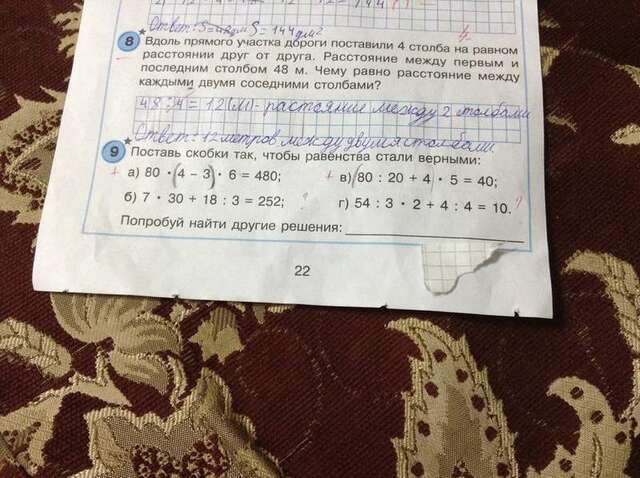 Ответ: S = 144 дм²
8 Вдоль прямого участка дороги поставили 4 столба на равном
расстоянии друг от друга. Расстояние между первым и
последним столбом 48 м. Чему равно расстояние между
каждыми двумя соседними столбами?
48 : 4 = 12 (м) - растояние между 2 столбами
Ответ: 12 метров между двумя столбами
9 Поставь скобки так, чтобы равенства стали верными:
+ а) 80 · (4 − 3) · 6 = 480; + в) (80 : 20 + 4) · 5 = 40;
б) 7 · 30 + 18 : 3 = 252; ? г) 54 : 3 · 2 + 4 : 4 = 10. ?
Попробуй найти другие решения:
22